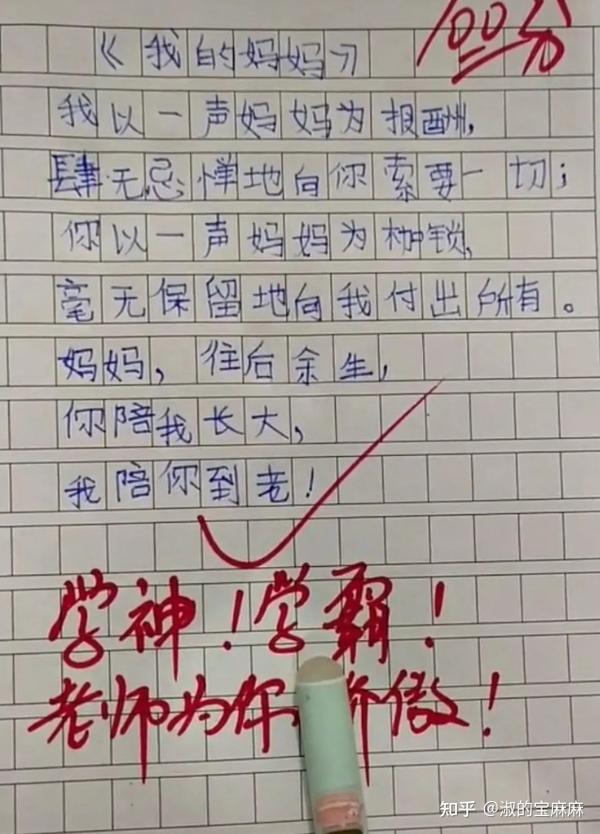 100分
《我的妈妈》
我以一声妈妈为报酬,
肆无忌惮地向你索要一切;
你以一声妈妈为枷锁,
毫无保留地向我付出所有。
妈妈,往后余生,
你陪我长大,
我陪你到老!
学神!学霸!
老师为你骄傲!
知乎 @淑的宝麻麻